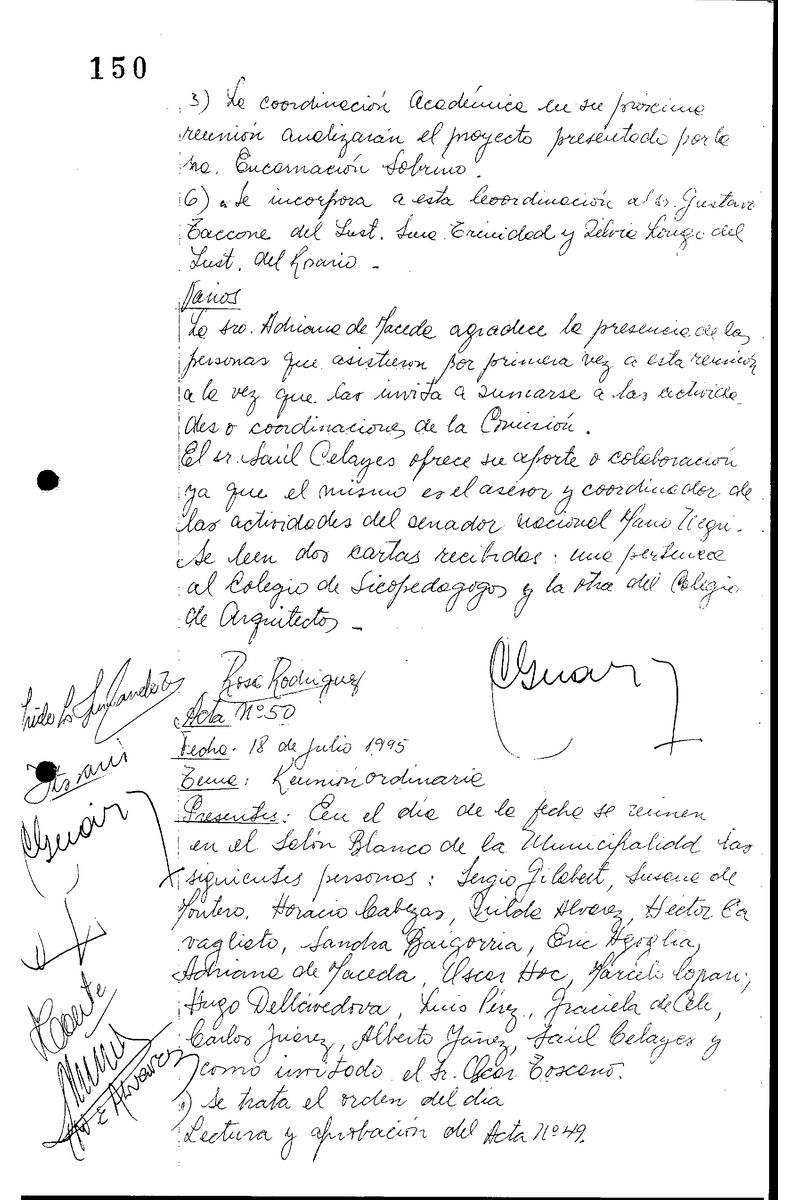 150
3) La coordinación Académica en su próxima
reunión analizarán el proyecto presentado por la
sra. Encarnación Sobrino.
6) Se incorpora a esta Coordinación al sr. Gustavo
Taccone del Inst. Sma. Trinidad y Silvia Longo del
Inst. del Rosario -
Varios
La sra. Adriana de Maceda agradece la presencia de las
personas que asistieron por primera vez a esta reunión
a la vez que las invita a sumarse a las activida
des o coordinaciones de la Comisión.
El sr. Saúl Celayes ofrece su aporte o colaboración
ya que el mismo es el asesor y coordinador de
las actividades del senador nacional
Se leen dos cartas recibidas: una pertenece
al Colegio de Sicopedagogos y la otra del Colegio
de Arquitectos -
Rosa Rodriguez
Acta Nº 50
Fecha. 18 de julio 1995
Tema: Reunión ordinaria
Presentes: En el día de la fecha se reunen
en el Salón Blanco de la Municipalidd las
siguientes personas: Sergio Gilabert, Susana de
Montero, Horacio Cabezas, Hilda Alvarez, Héctor Ca
vagliato, Sandra Baigorria, Eric Agoglia,
Adriana de Maceda, Oscar Hoc, Marcela
Hugo Dellavedova, Luis Pérez, Graciela de Celi,
Carlos Juárez, Alberto Yáñez, Saúl Celayes y
como invitado el Sr. Oscar Toscano.
) Se trata el orden del día
Lectura y aprobación del Acta Nº 49.
Alvarez